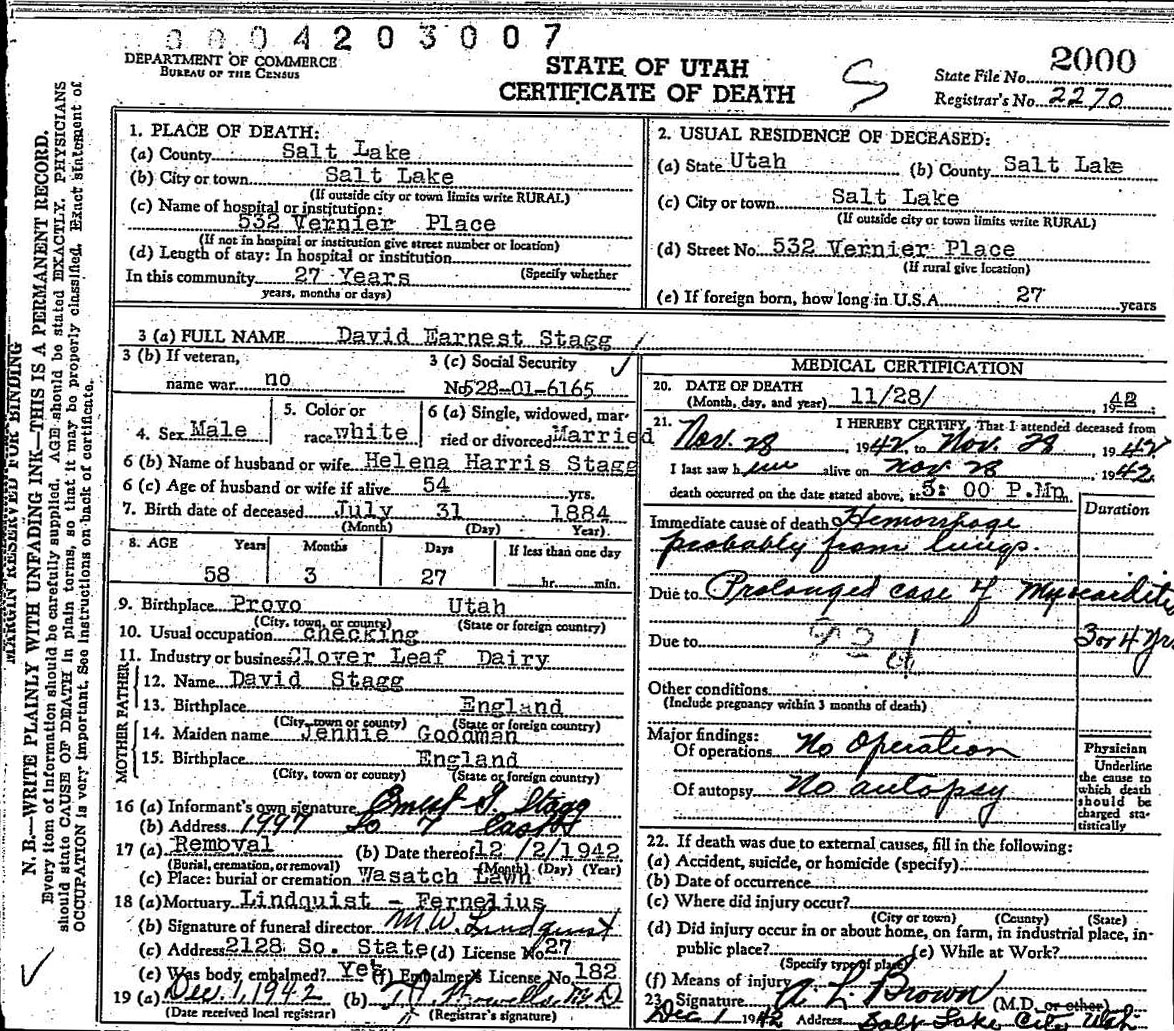 0004203007
DEPARTMENT OF COMMERCE
BUREAU OF THE CENSUS
STATE OF UTAH
CERTIFICATE OF DEATH
2000
State File No.
Registrar's No. 2270
MARGIN RESERVED FOR BINDING
N. B.—WRITE PLAINLY WITH UNFADING INK—THIS IS A PERMANENT RECORD.
Every item of information should be carefully supplied. AGE should be stated EXACTLY. PHYSICIANS
should state CAUSE OF DEATH in plain terms, so that it may be properly classified. Exact statement of
OCCUPATION is very important. See instructions on back of certificate.
1. PLACE OF DEATH:
(a) County Salt Lake
(b) City or town Salt Lake
(If outside city or town limits write RURAL)
(c) Name of hospital or institution:
532 Vernier Place
(If not in hospital or institution give street number or location)
(d) Length of stay: In hospital or institution
(Specify whether
In this community 27 Years
years, months or days)
2. USUAL RESIDENCE OF DECEASED:
(a) State Utah (b) County Salt Lake
(c) City or town Salt Lake
(If outside city or town limits write RURAL)
(d) Street No. 532 Vernier Place
(If rural give location)
(e) If foreign born, how long in U.S.A. 27 years
3 (a) FULL NAME David Earnest Stagg
3 (b) If veteran, 3 (c) Social Security
name war no No. 528-01-6165
4. Sex Male 5. Color or race white 6 (a) Single, widowed, married or divorced Married
6 (b) Name of husband or wife Helena Harris Stagg
6 (c) Age of husband or wife if alive 54 yrs.
7. Birth date of deceased July 31 1884
(Month) (Day) Year)
8. AGE Years Months Days If less than one day
58 3 27 hr. min.
9. Birthplace Provo Utah
(City, town, or county) (State or foreign country)
10. Usual occupation checking
11. Industry or business Clover Leaf Dairy
FATHER
12. Name David Stagg
13. Birthplace England
(City, town or county) (State or foreign country)
MOTHER
14. Maiden name Jennie Goodman
15. Birthplace England
(City, town or county) (State or foreign country)
16 (a) Informant's own signature Stagg
(b) Address 1997 So 7 East
17 (a) Removal (b) Date thereof 12/2/1942
(Burial, cremation, or removal) (Month) (Day) (Year)
(c) Place: burial or cremation Wasatch Lawn
18 (a) Mortuary Lindquist - Fernelius
(b) Signature of funeral director M.W. Lindquist
(c) Address 2128 So. State (d) License No. 27
(e) Was body embalmed? Yes (f) Embalmers License No. 182
19 (a) Dec. 1, 1942 (b)
(Date received local registrar) (Registrar's signature)
MEDICAL CERTIFICATION
20. DATE OF DEATH
(Month, day, and year) 11/28/ 1942
21. I HEREBY CERTIFY, That I attended deceased from
Nov. 28, 1942, to Nov. 28, 1942
I last saw him alive on Nov 28 1942
death occurred on the date stated above, at 5: 00 P.Mm
Duration
Immediate cause of death Hemorrhage
probably from lungs.
Due to Prolonged case of Myocarditis
Due to 3 or 4 yrs
Other conditions
(Include pregnancy within 3 months of death)
Major findings:
Of operations No Operation
Of autopsy No autopsy
Physician
Underline
the cause to
which death
should be
charged sta-
tistically
22. If death was due to external causes, fill in the following:
(a) Accident, suicide, or homicide (specify)
(b) Date of occurrence
(c) Where did injury occur?
(City or town) (County) (State)
(d) Did injury occur in or about home, on farm, in industrial place, in-
public place? (e) While at Work?
(Specify type of place)
(f) Means of injury
23. Signature A L Brown (M.D. or other)
Dec 1 1942 Address Salt Lake City Utah